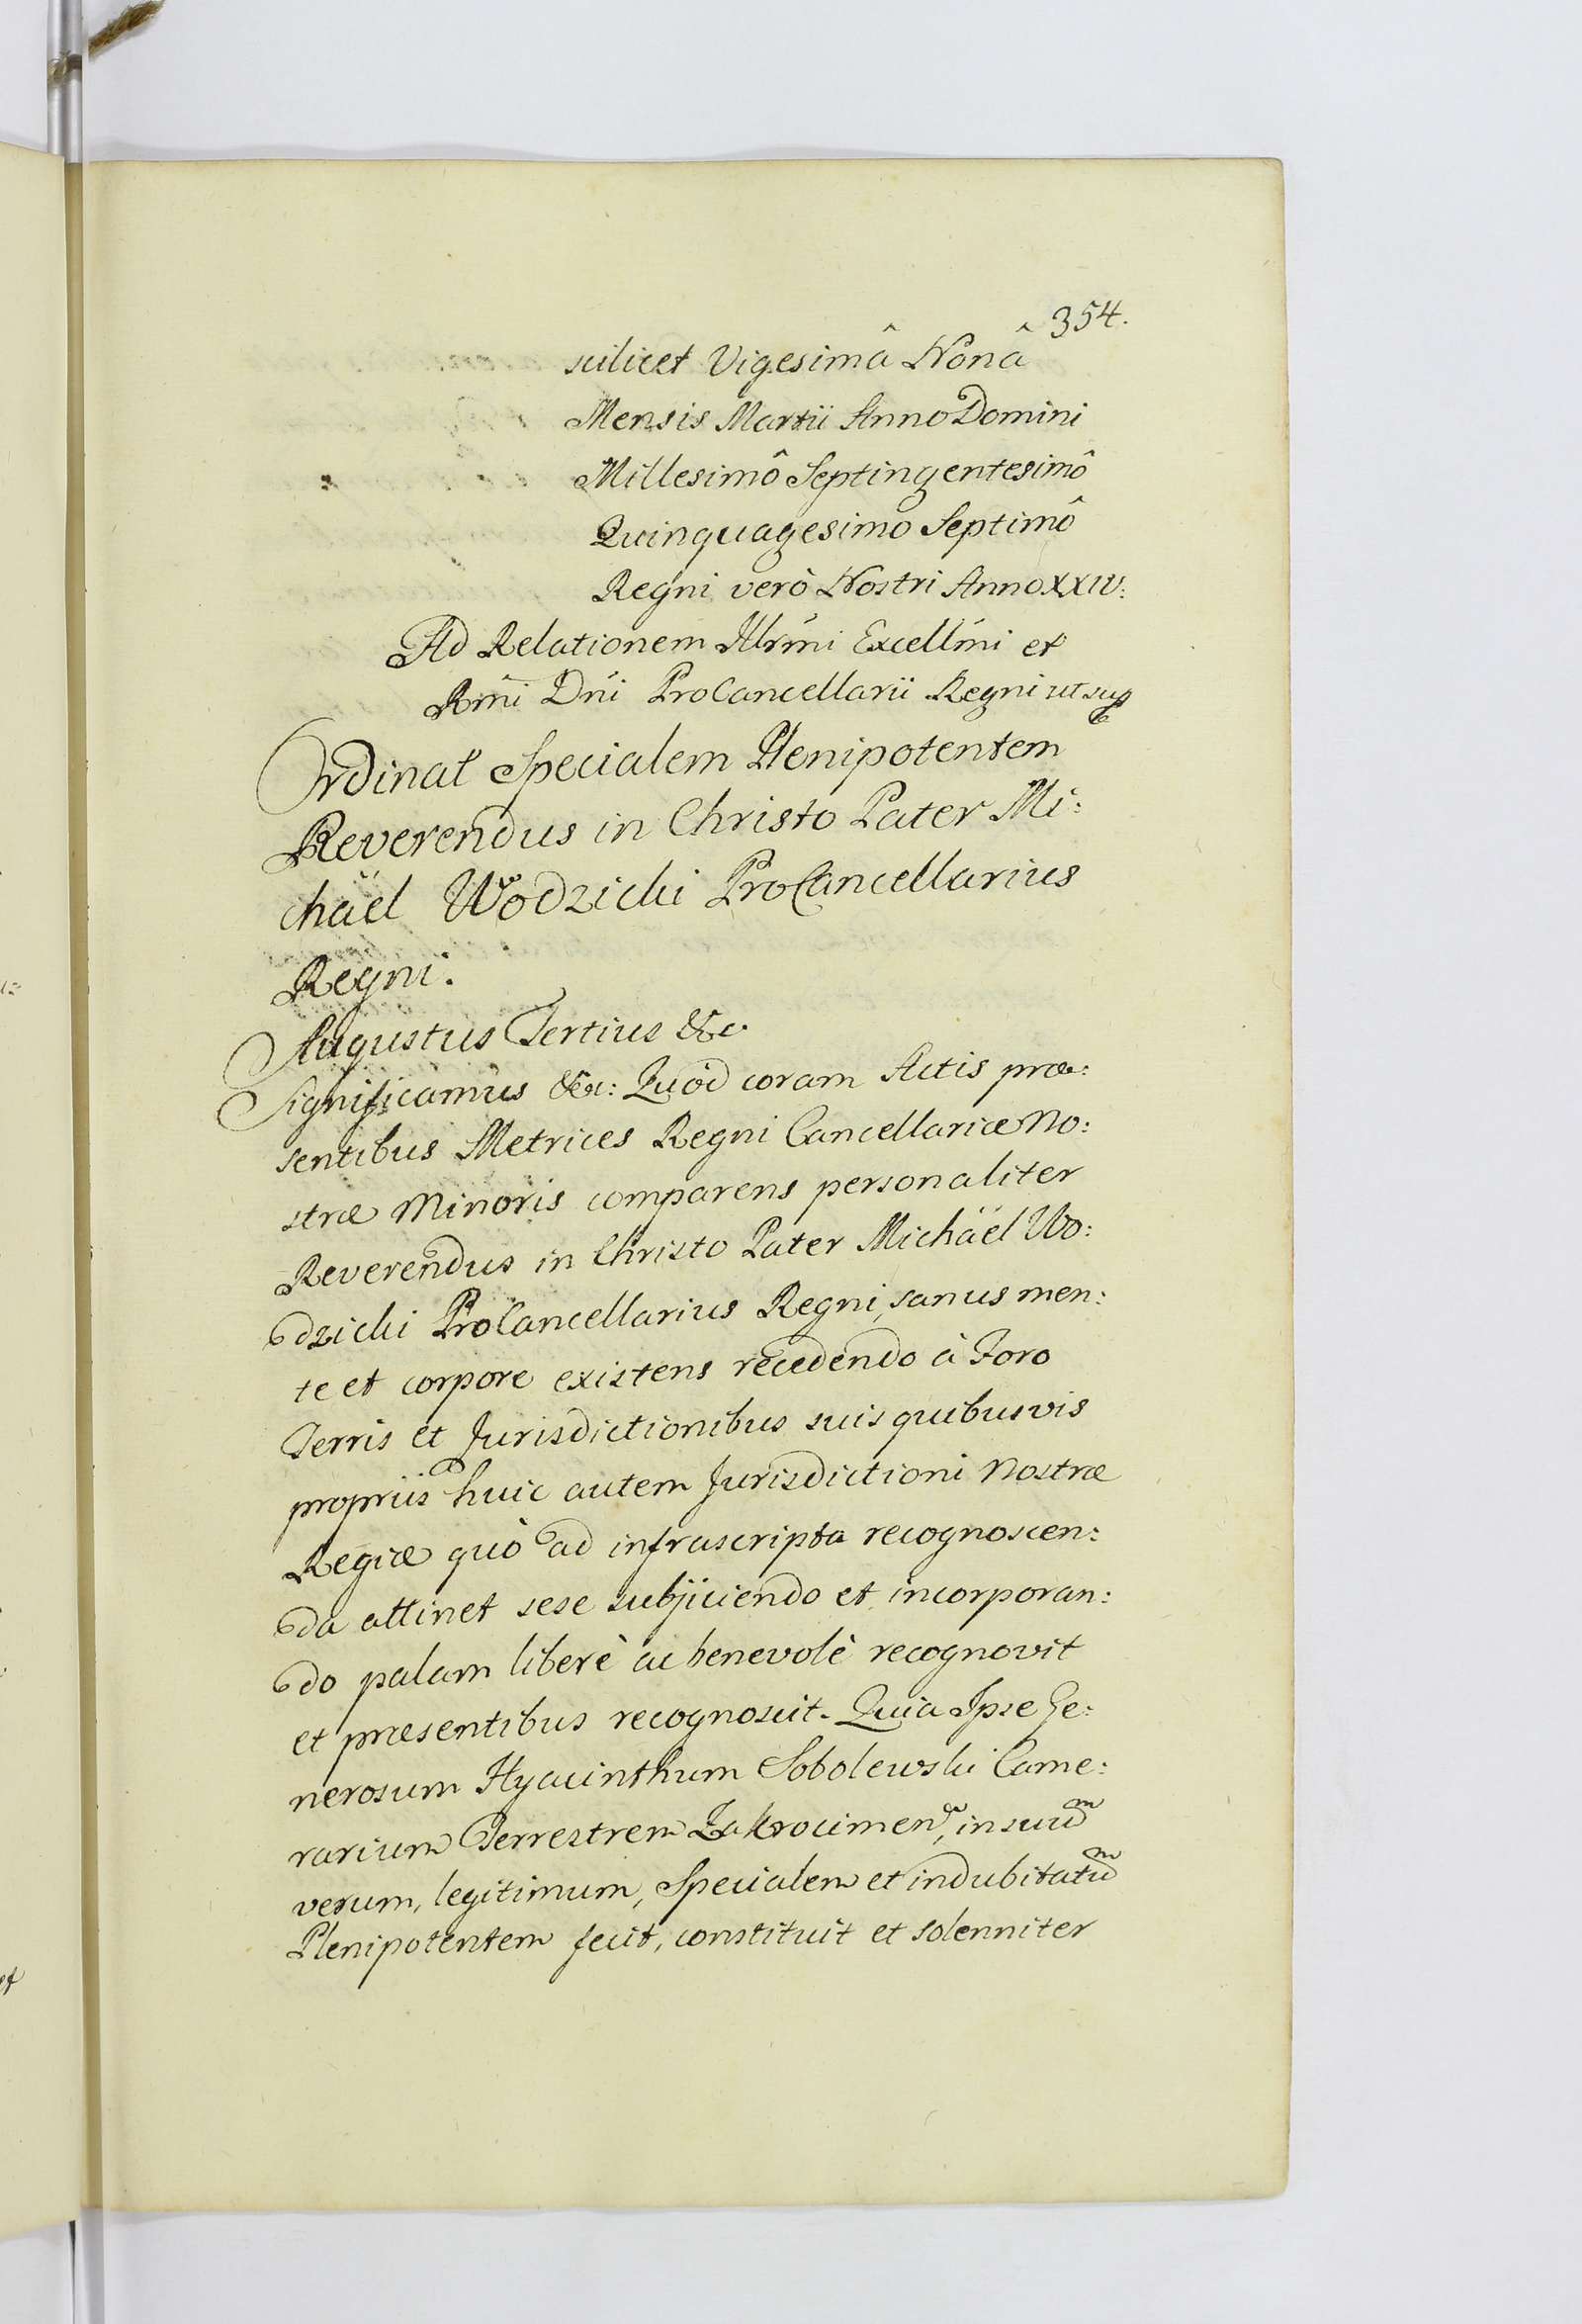 354.
scilicet Vigesimâ Nonâ
Mensis Martii Anno Domini
Millesimô Septingentesimô
Quinquagesimo Septimô
Regni verò Nostri Anno XXIV:
Ad Relationem Illrmi Excellmi et
Rmi Dni ProCancellarii Regni ut sup
Ordinat Specialem Plenipotentem
Reverendus in Christo Pater Mi:
chäel Wodzicki ProCancellarius
Regni.
Augustus Tertius &c
Significamus &c: Quod coram Actis præ:
sentibus Metrices Regni Cancellariæ No:
stræ Minoris comparens personaliter
Reverendus in Christo Pater Michäel Wo:
dzicki ProCancellarius Regni, sanus men:
te et corpore existens recedendo à Foro
Terris et Jurisdictionibus suis quibusvis
propriis huic autem Jurisdictioni Nostræ
Regiæ quò ad infrascripta recognoscen:
da attinet sese subjiciendo et incorporan:
do palam liberè ac benevolè recognovit
et præsentibus recognoscit. Quia Ipse Ge:
nerosum Hyacinthum Sobolewski Came:
rarium Terrestrem Zakrocimen, in suum
verum, legitimum, Specialem et indubitatum
Plenipotentem fecit, constituit et solenniter